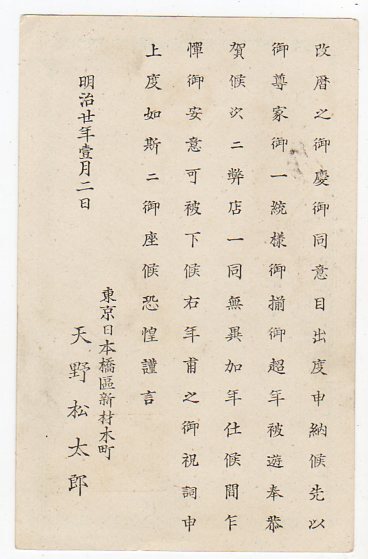 改暦之御慶御同意目出度申納候先以
御尊家御一統様御揃御超年被遊奉恭
賀候次ニ弊店一同無異加年仕候間乍
憚御安意可被下候右年甫之御祝詞申
上度如斯ニ御座候恐惶謹言
明治廿年壹月二日
東京日本橋區新材木町
天野松太郎